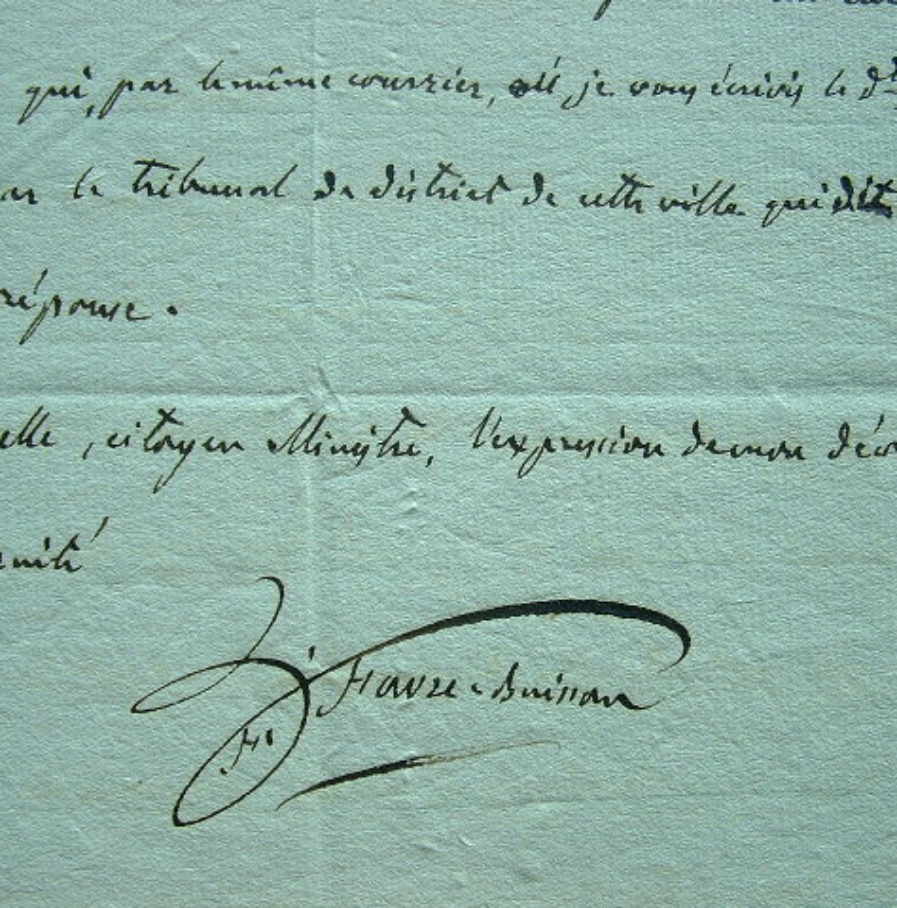 qui, par le même courrier, où je vous écrivis le d
le tribunal de district de cette ville qui
réponse.
elle, citoyen Ministre, l'expression de mon dév
rnité
Favre-Buisson